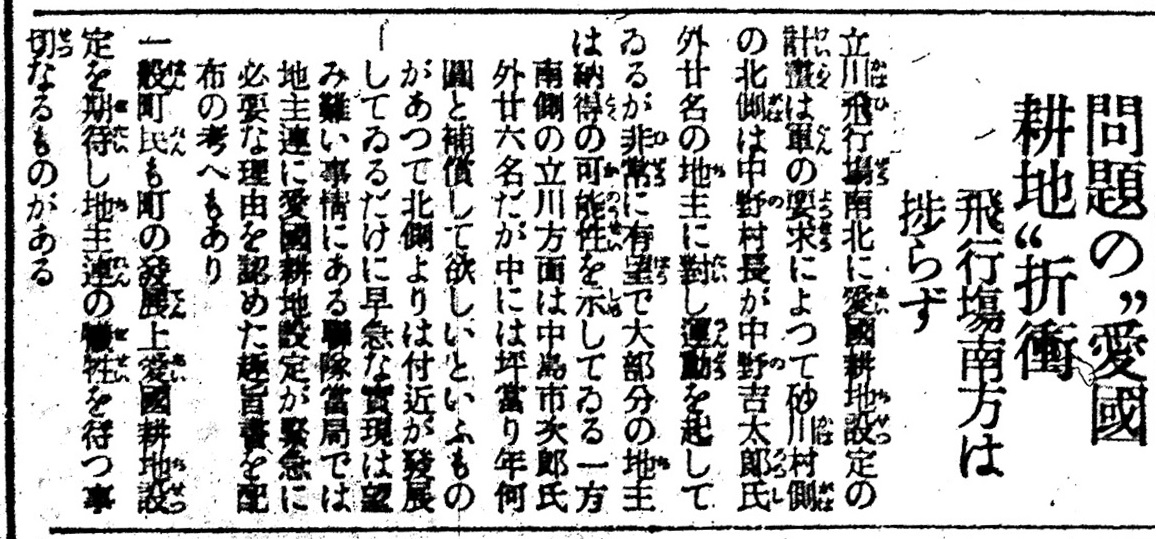 問題の〝愛國
耕地〟折衝
飛行場南方は
捗らず
立川飛行場南北に愛國耕地設定の
計畫は軍の要求によつて砂川村側
の北側は中野村長が中野吉太郎氏
外廿名の地主に對し運動を起して
ゐるが非常に有望で大部分の地主
は納得の可能性を示してゐる一方
南側の立川方面は中島市次郎氏
外廿六名だが中には坪當り年何
圓と補償して欲しいといふもの
があつて北側よりは付近が發展
してゐるだけに早急な實現は望
み難い事情にある聯隊當局では
地主連に愛國耕地設定が緊急に
必要な理由を認めた趣旨書を配
布の考へもあり
一般町民も町の發展上愛國耕地設
定を期待し地主連の犠牲を待つ事
切なるものがある